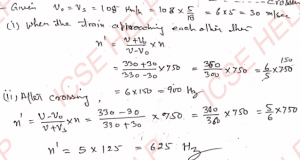 crossing
Given V₀ = Vs = 108 Km/h = 108 × 5/18 = 6×5 = 30 m/sec
(i) When the train approaching each other then
n' = (V+V₀)/(V-V₀) × n
= (330+30)/(330-30) × 750 = 360/300 × 750 = 6/5 × 750 150
= 6×150 = 900 Hz
(ii) After crossing,
n' = (V-V₀)/(V+Vs) × n = (330-30)/(330+30) × 750 = 300/360 × 750 = 5/6 × 750
n' = 5 × 125 = 625 Hz